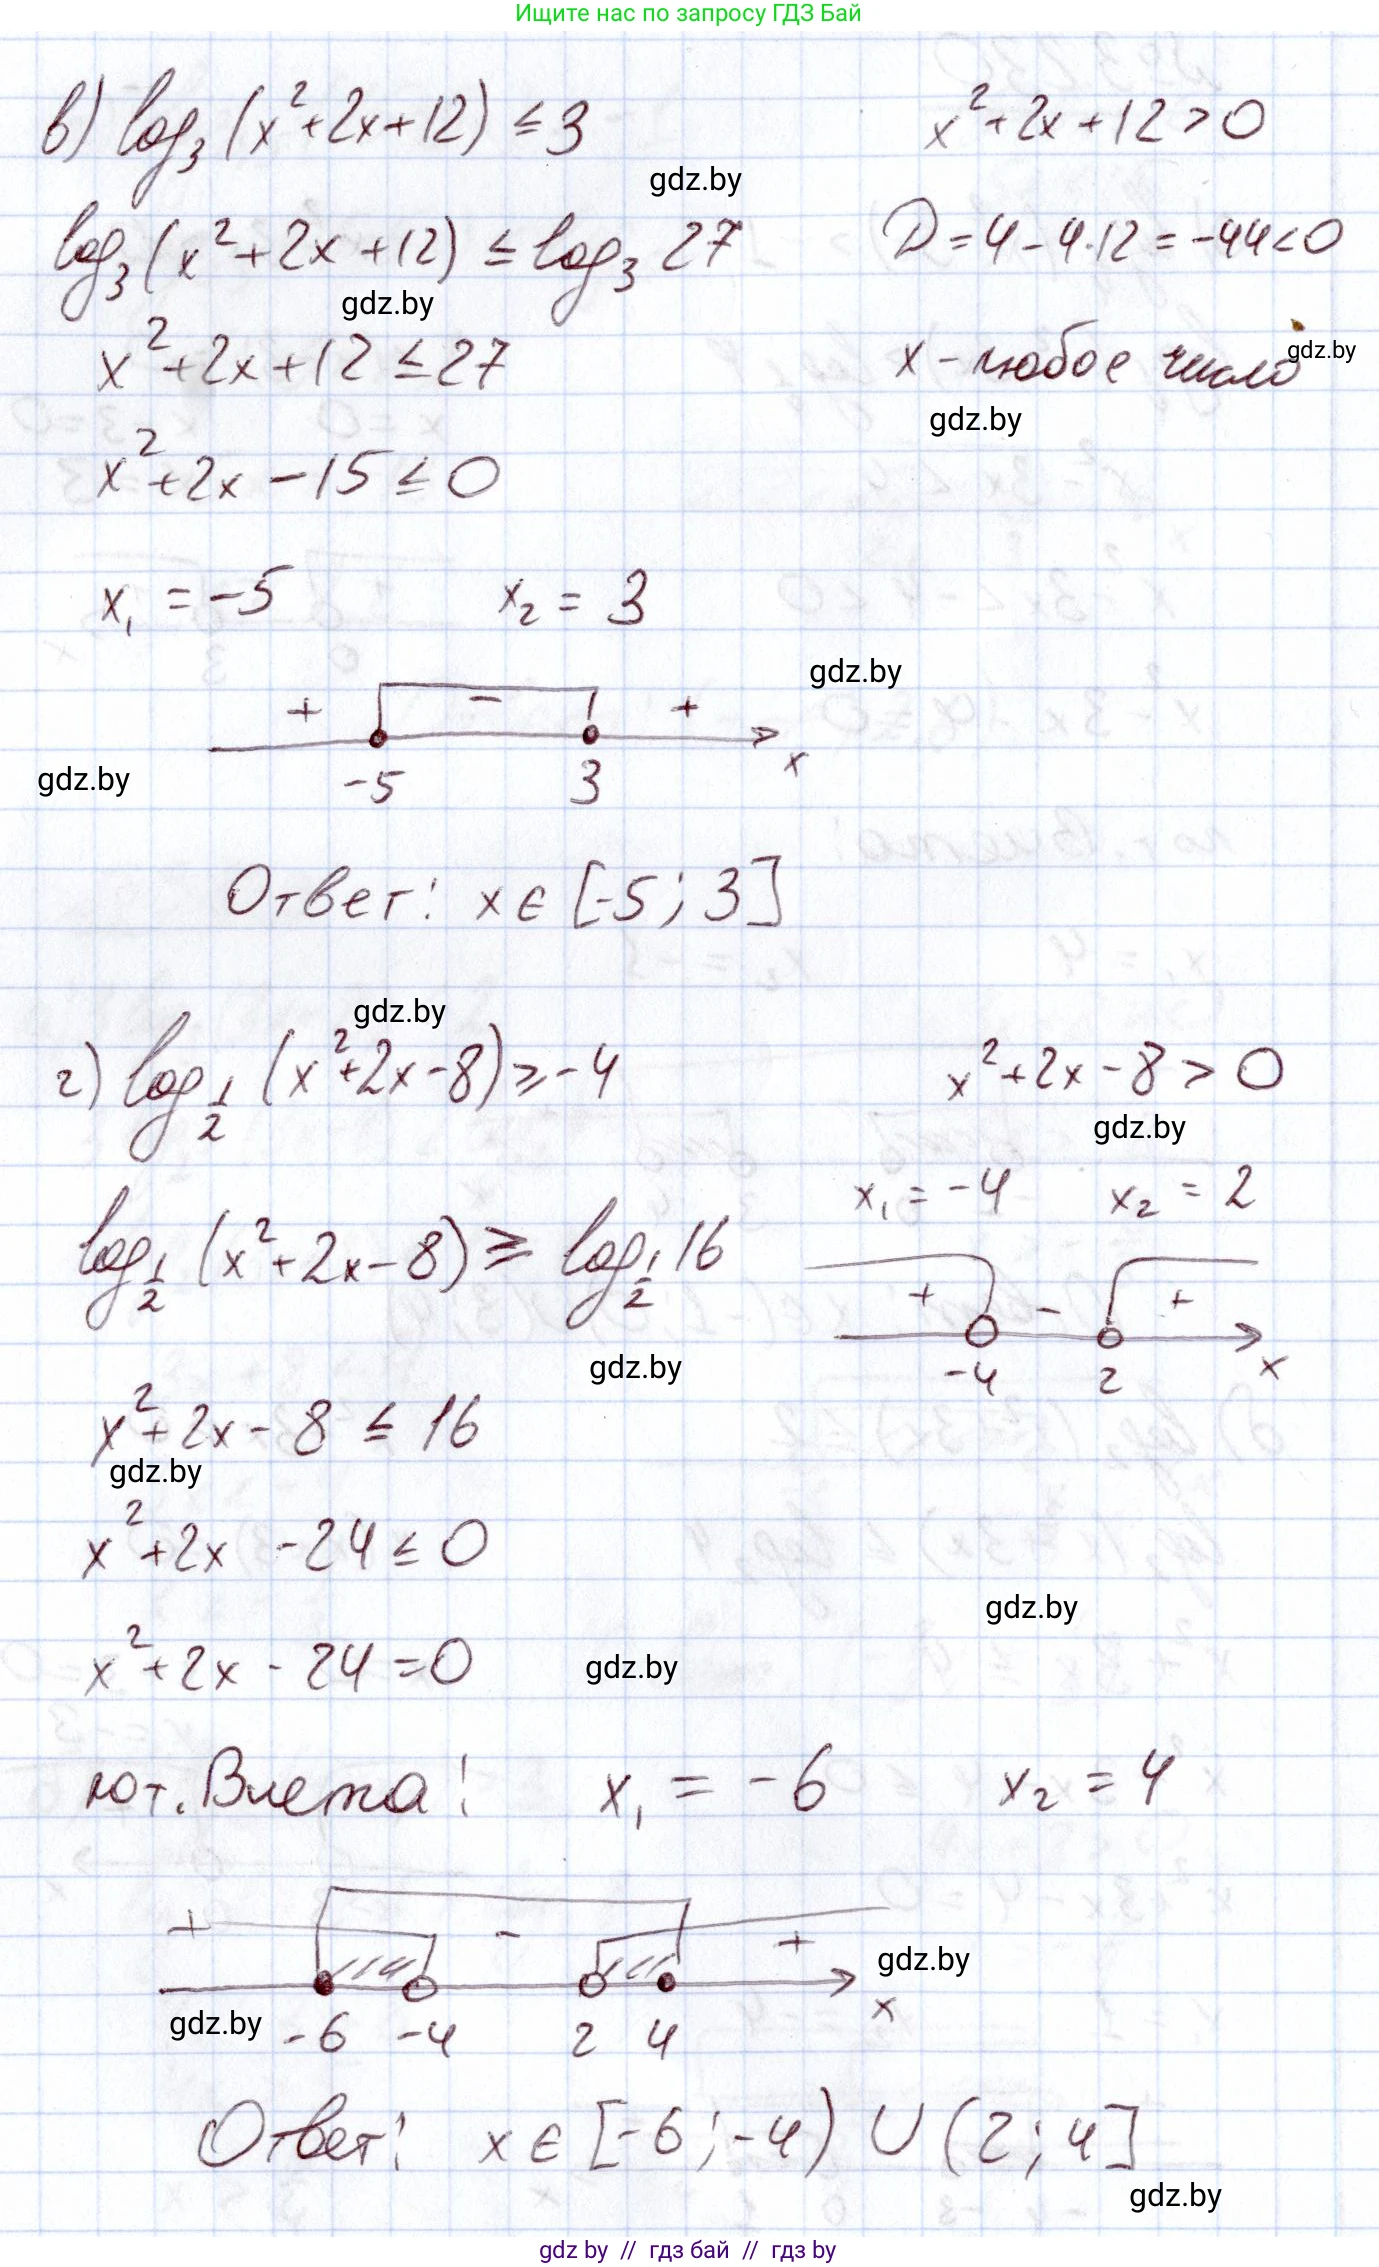 Ищите нас по запросу ГДЗ Бай
в) log₃ (x²+2x+12) ≤ 3
x²+2x+12>0
gdz.by
log₃ (x²+2x+12) ≤ log₃ 27
D=4-4·12=-44<0
gdz.by
x²+2x+12≤27
x - любое число
gdz.by
gdz.by
x²+2x-15≤0
x₁ = -5 x₂ = 3
gdz.by
+ - +
gdz.by
-5 3 x
Ответ: x ∈ [-5; 3]
gdz.by
г) log_{1/2} (x²+2x-8) ≥ -4
x²+2x-8>0
gdz.by
x₁ = -4 x₂ = 2
log_{1/2} (x²+2x-8) ≥ log_{1/2} 16
+ - +
-4 2 x
gdz.by
x²+2x-8 ≤ 16
gdz.by
x²+2x-24≤0
gdz.by
x²+2x-24=0
gdz.by
по т. Виета: x₁ = -6 x₂ = 4
+ - +
gdz.by
gdz.by
-6 -4 2 4 x
Ответ: x ∈ [-6; -4) ∪ (2; 4]
gdz.by
gdz by // гдз бай // гдз by